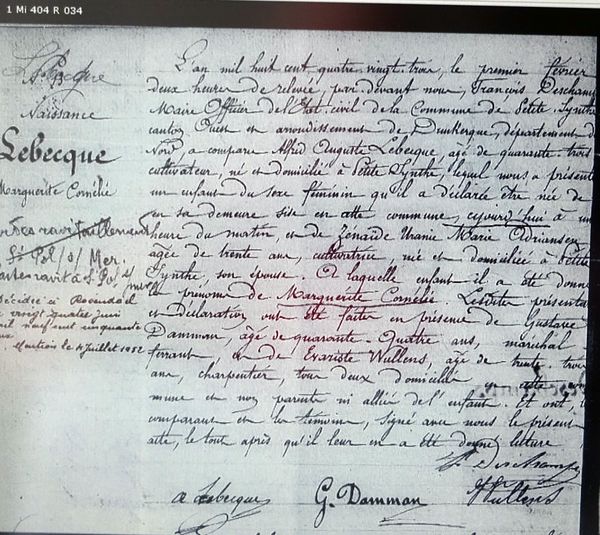 1 Mi 404 R 034
Lebecque
Naissance
Lebecque
Marguerite Cornélie
St Pol s/ Mer.
cartes ravit à St Pol s/
mer
Décédée à Rosendaël
le vingt quatre juin
mil neuf cent cinquante
Mention le 4 juillet 1952
L'an mil huit cent quatre vingt trois, le premier février
deux heures de relevée, par devant nous, François Deschamps
Maire Officier de l'Etat civil de la Commune de Petite Synthe
canton Ouest en arrondissement de Dunkerque, département du
Nord, a comparu Alfred Auguste Lebecque, âgé de quarante trois
cultivateur, né et domicilié à Petite Synthe, lequel nous a présenté
un enfant du sexe féminin qu'il a déclarée être née de
en sa demeure sise en cette commune, cejourd'hui à une
heure du matin, et de Zénaïde Uranie Marie Adriansen,
agée de trente ans, cultivatrice, née et domiciliée à Petite
Synthe, son épouse. A laquelle enfant il a été donné
les prénoms de Marguerite Cornélie. Lesdites présentation
et déclaration ont été faites en présence de Gustave
Damman, âgé de quarante-quatre ans, maréchal
ferrant, et de Evariste Wullens, âgé de trente trois
ans, charpentier, tous deux domiciliés cette com
mune et non parents ni alliés de l'enfant. Et ont, le
comparant et les témoins, signé avec nous le présent
acte, le tout après qu'il leur en a été donné lecture
F. Deschamps
A Lebecque G. Damman Wullens